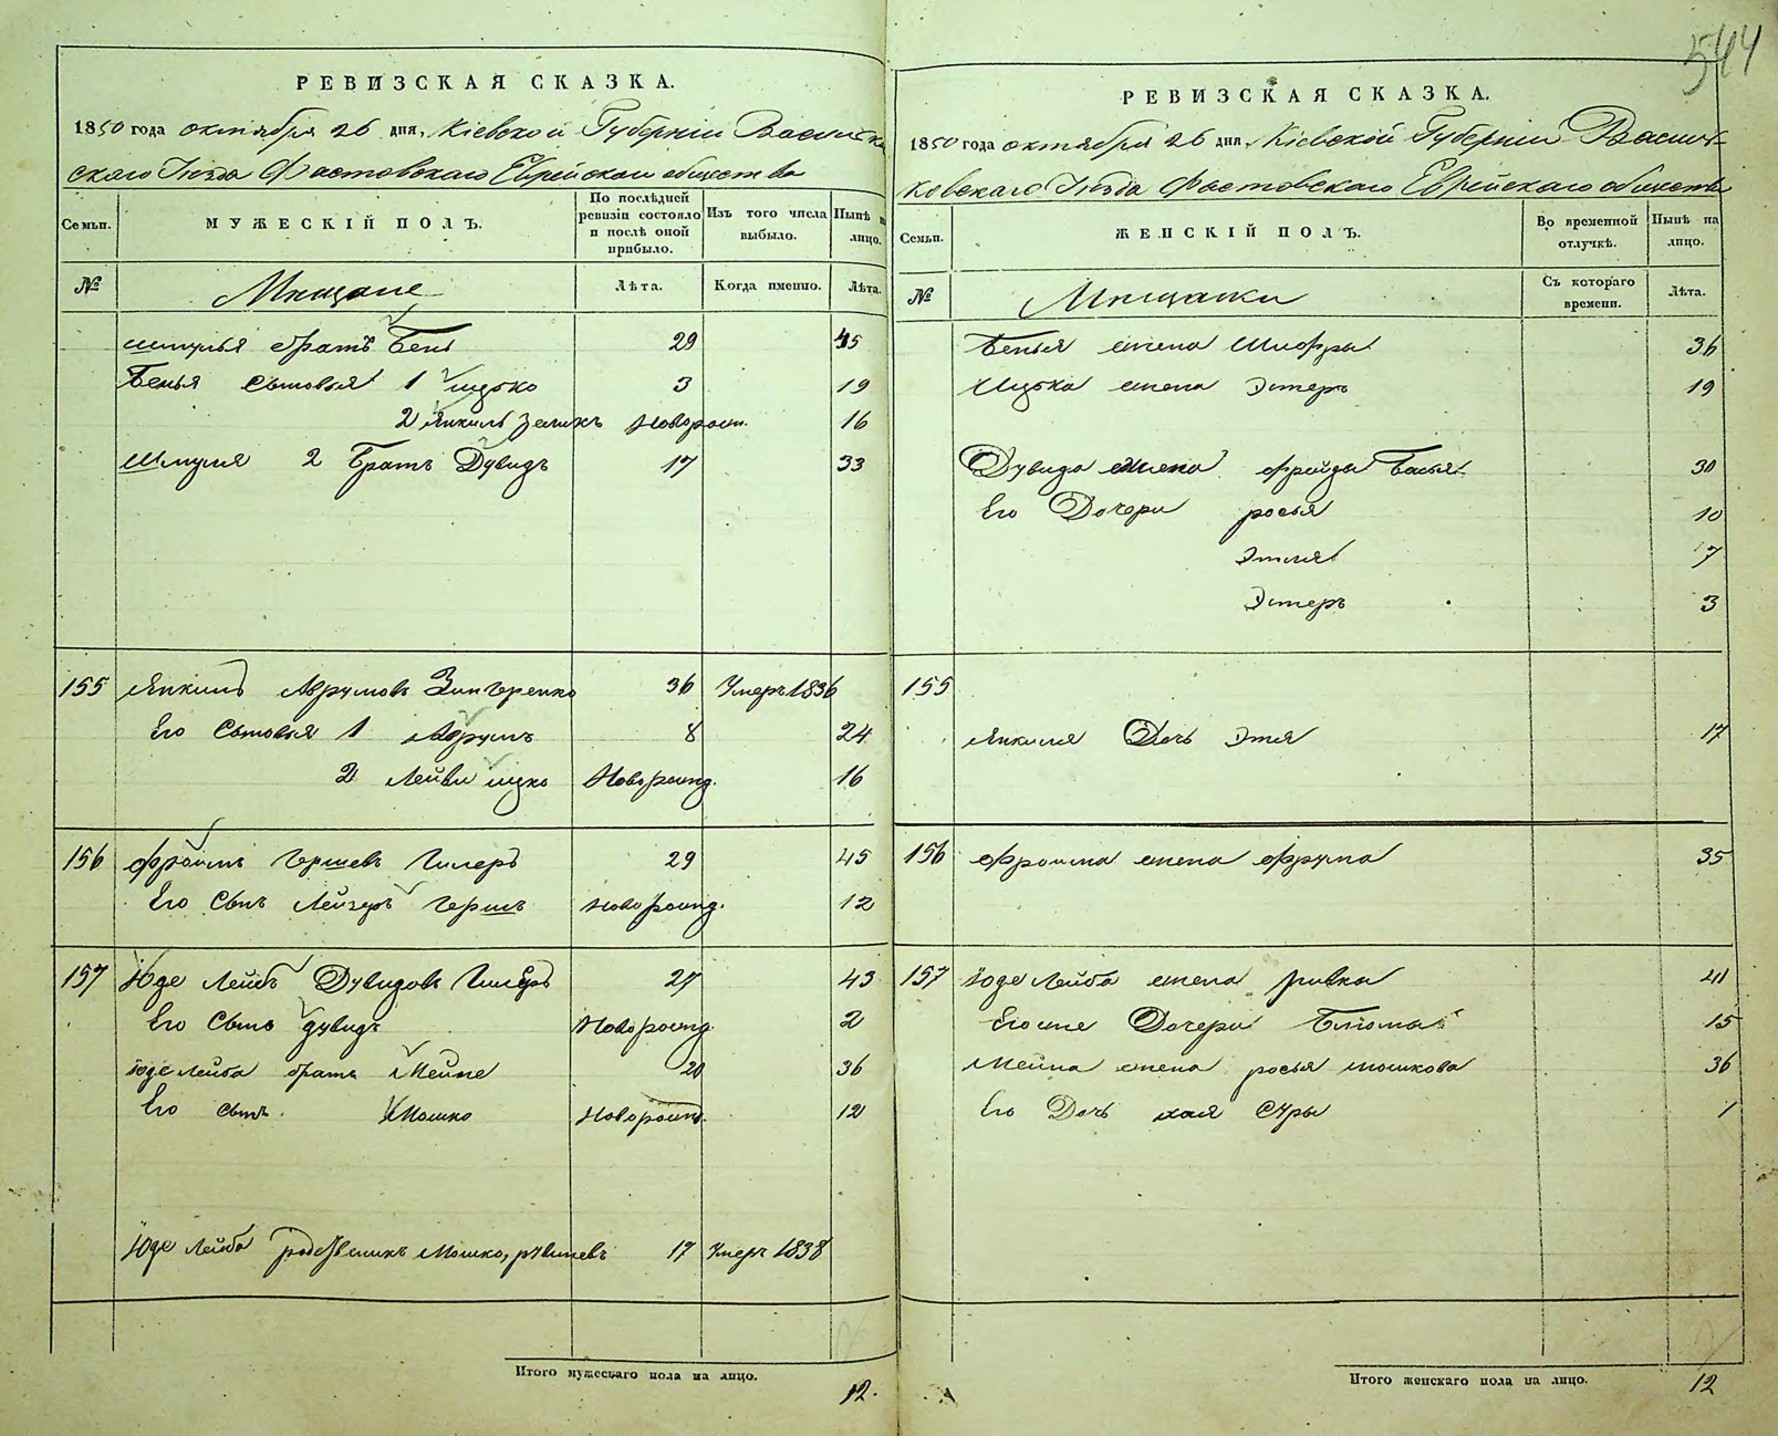 544
РЕВИЗСКАЯ СКАЗКА.
1850 года октября 26 дня, Кіевской Губерніи Василь
скаго Уезда Фастовскаго Еврейскаго общества
Семьи.
МУЖЕСКІЙ ПОЛЪ.
По послѣдней ревизіи состояло и послѣ оной прибыло.
Изъ того числа выбыло.
Нынѣ на лицо.
№
Мещане
Лѣта.
Когда именно.
Лѣта.
Шмулья братъ Бень 29 45
Бенья сыновья 1 Ицько 3 19
2 Янкиль Зеликъ Новорожд. 16
Шмуля 2 Братъ Дувидъ 17 33
155 Янкиль Аврумовъ Зингеренко 36 Умеръ 1836
Его Сыновья 1 Аврумъ 8 24
2 Лейви Ицко Новорожд. 16
156 Фроимъ Гершевъ Гилеръ 29 45
Его Сынъ Лейзеръ Гершъ Новорожд. 12
157 Юде Лейбъ Дувидовъ Гилеръ 27 43
Его Сынъ Дувидъ Новорожд. 2
Юде Лейба братъ Мейше 20 36
Его сынъ Мошко Новорожд. 12
Юде Лейба родственикъ Мошко, 17 Умеръ 1838
Итого мужескаго пола на лицо.
12.
РЕВИЗСКАЯ СКАЗКА.
1850 года октября 26 дня, Кіевской Губерніи Василь-
ковскаго Уезда Фастовскаго Еврейскаго общества
Семьи.
ЖЕНСКІЙ ПОЛЪ.
Во временной отлучкѣ.
Нынѣ на лицо.
№
Мещанки
Съ котораго времени.
Лѣта.
Бенья жена Шифры 36
Ицька жена Эстеръ 19
Дувида жена Фрейды Басья 30
Его Дочери росья 10
Этля 7
Эстеръ 3
155
Янкиля Дочь Этя 17
156 Фроима жена Фрума 35
157 Юде Лейба жена Ривка 41
Его же Дочери Блюма 15
Мейша жена росья мошкова 36
Его Дочь хая Суры 1
Итого женскаго пола на лицо.
12